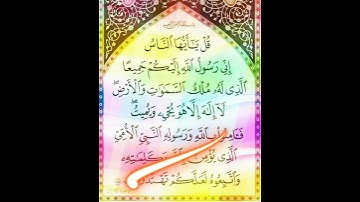 قُلْ يَٰٓأَيُّهَا ٱلنَّاسُ
إِنِّي رَسُولُ ٱللَّهِ إِلَيْكُمْ جَمِيعًا
ٱلَّذِي لَهُۥ مُلْكُ ٱلسَّمَٰوَٰتِ وَٱلْأَرْضِ
لَآ إِلَٰهَ إِلَّا هُوَ يُحْيِۦ وَيُمِيتُ
فَـَٔامِنُوا۟ بِٱللَّهِ وَرَسُولِهِ ٱلنَّبِيِّ ٱلْأُمِّيِّ
ٱلَّذِي يُؤْمِنُ وَكَلِمَٰتِهِۦ
وَٱتَّبِعُوهُ لَعَلَّكُمْ تَهْتَدُونَ